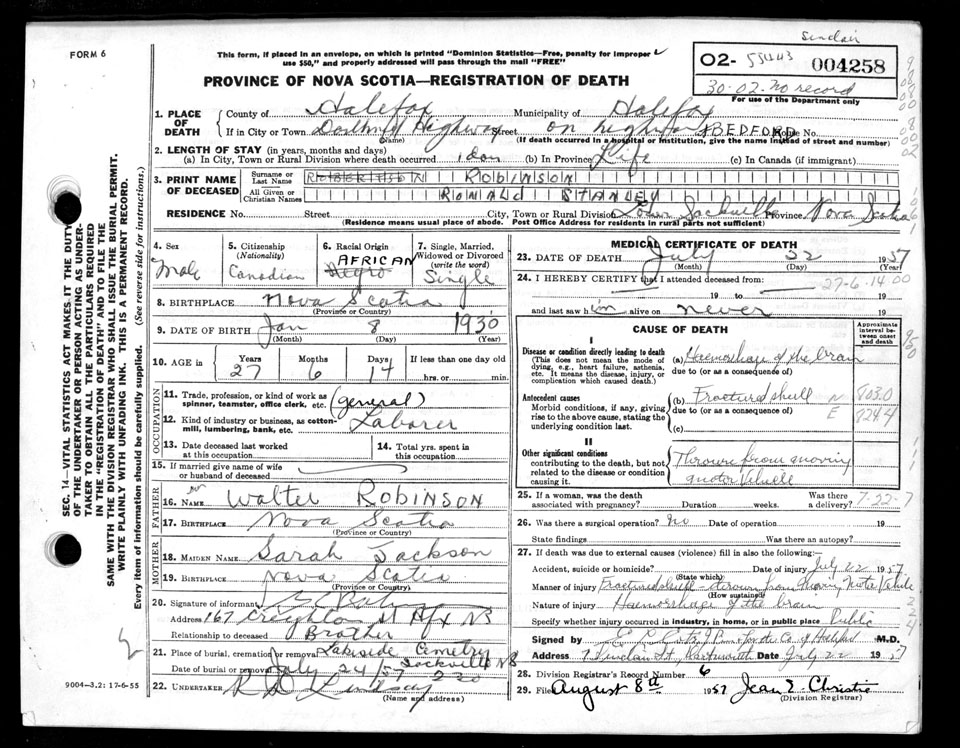 Sinclair
FORM 6
This form, if placed in an envelope, on which is printed "Dominion Statistics—Free, penalty for improper
use $50," and properly addressed will pass through the mail "FREE"
02- 55443 004258
30-02-No record
For use of the Department only
PROVINCE OF NOVA SCOTIA—REGISTRATION OF DEATH
1. PLACE OF DEATH
County of Halifax Municipality of Halifax
If in City or Town Highway Street on highway BEDFORD House No.
(Name) (If death occurred in a hospital or institution, give the name instead of street and number)
2. LENGTH OF STAY (in years, months and days)
(a) In City, Town or Rural Division where death occurred 1 day (b) In Province Life (c) In Canada (if immigrant)
3. PRINT NAME OF DECEASED
Surname or Last Name ROBINSON
All Given or Christian Names RONALD STANLEY
RESIDENCE No. Street City, Town or Rural Division Lower Sackville Province Nova Scotia
(Residence means usual place of abode. Post Office Address for residents in rural parts not sufficient)
4. Sex Male
5. Citizenship (Nationality) Canadian
6. Racial Origin AFRICAN Negro
7. Single, Married, Widowed or Divorced (write the word) Single
8. BIRTHPLACE Nova Scotia
(Province or Country)
9. DATE OF BIRTH Jan 8 1930
(Month) (Day) (Year)
10. AGE in Years 27 Months 6 Days 14 If less than one day old
hrs. or min.
OCCUPATION
11. Trade, profession, or kind of work as spinner, teamster, office clerk, etc. (general)
12. Kind of industry or business, as cotton-mill, lumbering, bank, etc. Laborer
13. Date deceased last worked at this occupation
14. Total yrs. spent in this occupation
15. If married give name of wife or husband of deceased
FATHER
16. NAME Walter ROBINSON
17. BIRTHPLACE Nova Scotia
(Province or Country)
MOTHER
18. MAIDEN NAME Sarah Jackson
19. BIRTHPLACE Nova Scotia
(Province or Country)
20. Signature of informant
Address 167 Creighton St Hfx NS
Relationship to deceased Brother
21. Place of burial, cremation or removal Lakeside Cemetry
Sackville NS
Date of burial or removal July 24/57 2 30
22. UNDERTAKER Lindsay
(Name and address)
MEDICAL CERTIFICATE OF DEATH
23. DATE OF DEATH July 22 1957
(Month) (Day)
24. I HEREBY CERTIFY that I attended deceased from 27-6-14 00
19 to 19
and last saw him alive on never 19
CAUSE OF DEATH
Approximate interval between onset and death
I
Disease or condition directly leading to death
(This does not mean the mode of dying, e.g., heart failure, asthenia, etc. It means the disease, injury, or complication which caused death.)
(a) Haemorrhage of the brain
due to (or as a consequence of)
Antecedent causes
Morbid conditions, if any, giving rise to the above cause, stating the underlying condition last.
(b) Fractured skull N 803.0
due to (or as a consequence of) E 724.4
(c)
II
Other significant conditions
contributing to the death, but not related to the disease or condition causing it.
Thrown from moving
motor Vehicle
25. If a woman, was the death associated with pregnancy? Duration weeks. Was there a delivery? 7-22-7
26. Was there a surgical operation? No Date of operation 19
State findings Was there an autopsy?
27. If death was due to external causes (violence) fill in also the following:—
Accident, suicide or homicide? Date of injury July 22 1957
(State which)
Manner of injury Fractured skull - thrown from Moving Motor Vehicle
(How sustained)
Nature of injury Haemorrhage of the brain
Specify whether injury occurred in industry, in home, or in public place Public
Signed by M.D.
Address Dartmouth Date July 22 1957
28. Division Registrar's Record Number 6
29. Filed August 8th 1957 Jean E. Christie
(Division Registrar)
SEC. 14—VITAL STATISTICS ACT MAKES IT THE DUTY
OF THE UNDERTAKER OR PERSON ACTING AS UNDER-
TAKER TO OBTAIN ALL THE PARTICULARS REQUIRED
IN THE "REGISTRATION OF DEATH" AND TO FILE THE
SAME WITH THE DIVISION REGISTRAR WHO SHALL ISSUE THE BURIAL PERMIT.
WRITE PLAINLY WITH UNFADING INK. THIS IS A PERMANENT RECORD.
Every item of information should be carefully supplied. (See reverse side for instructions.)
9004—3.2: 17-6-55